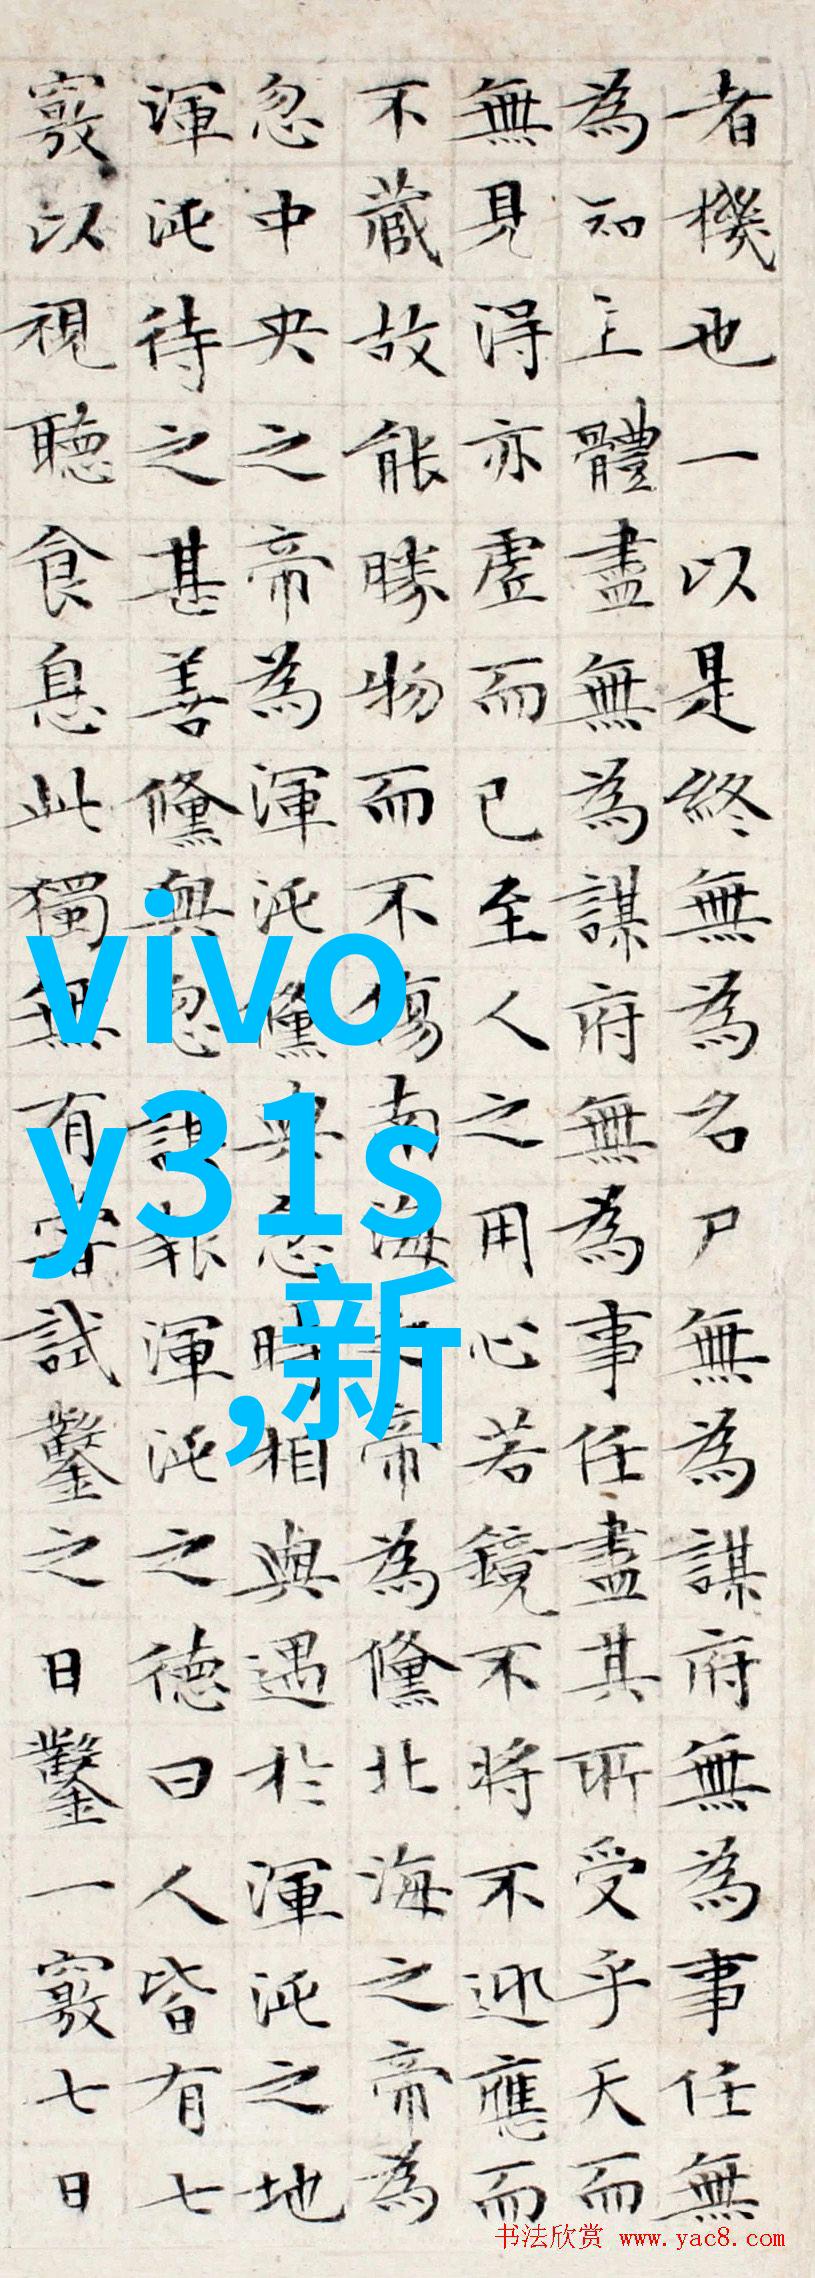 者機也一以是終無為名尸無為謀府無為事任無
為知主體盡無為謀府無為事任盡其所受乎天而
無見淂亦虛而已至人之用心若鏡不將不迎應而
不藏故能勝物而不傷南海之帝為儵北海之帝為
忽中央之帝為渾沌儵與忽時相與遇於渾沌之地
渾沌待之甚善儵與忽謀報渾沌之德曰人皆有七
竅以視聽食息此獨無有嘗試鑿之日鑿一竅七日
vivo
y31s
,新
书法欣赏 www.yac8.com